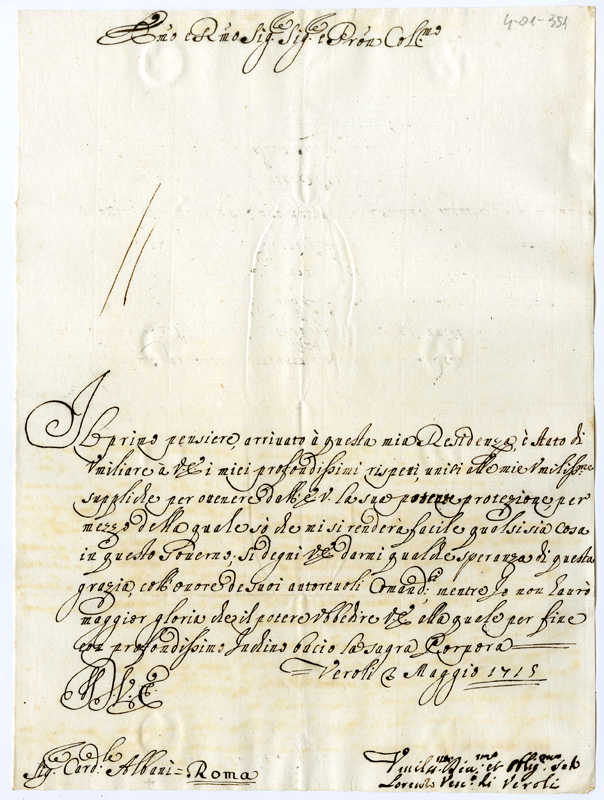 4-01-351
Em̃o e Rm̃o Sig.re Sig.re e Pron̄ Col.mo
Il primo pensiere, arrivato à questa mia Residenza, è stato di
Umiliare à V.E. i miei profondissimi rispeti, uniti alle mie Umilissme
suppliche per otenere dall'E.V. la sua potente protezione per
mezzo della quale sò che mi si renderà facile qualsisia Cosa
in questo Governo; si degni V.E. darmi qualche speranza di questa
grazia, coll'onore de suoi autorevoli Comand.ti mentre Io non haurò
maggior gloria che il potere ubbidire V.E. alla quale per fine
con profondissimo Inchino bacio la sagra Porpora
Veroli 2 Maggio 1715
Sig. Card.le Albani = Roma
Umiliss.mo et Oblig.mo
Lorenzo Vesc.o di Veroli